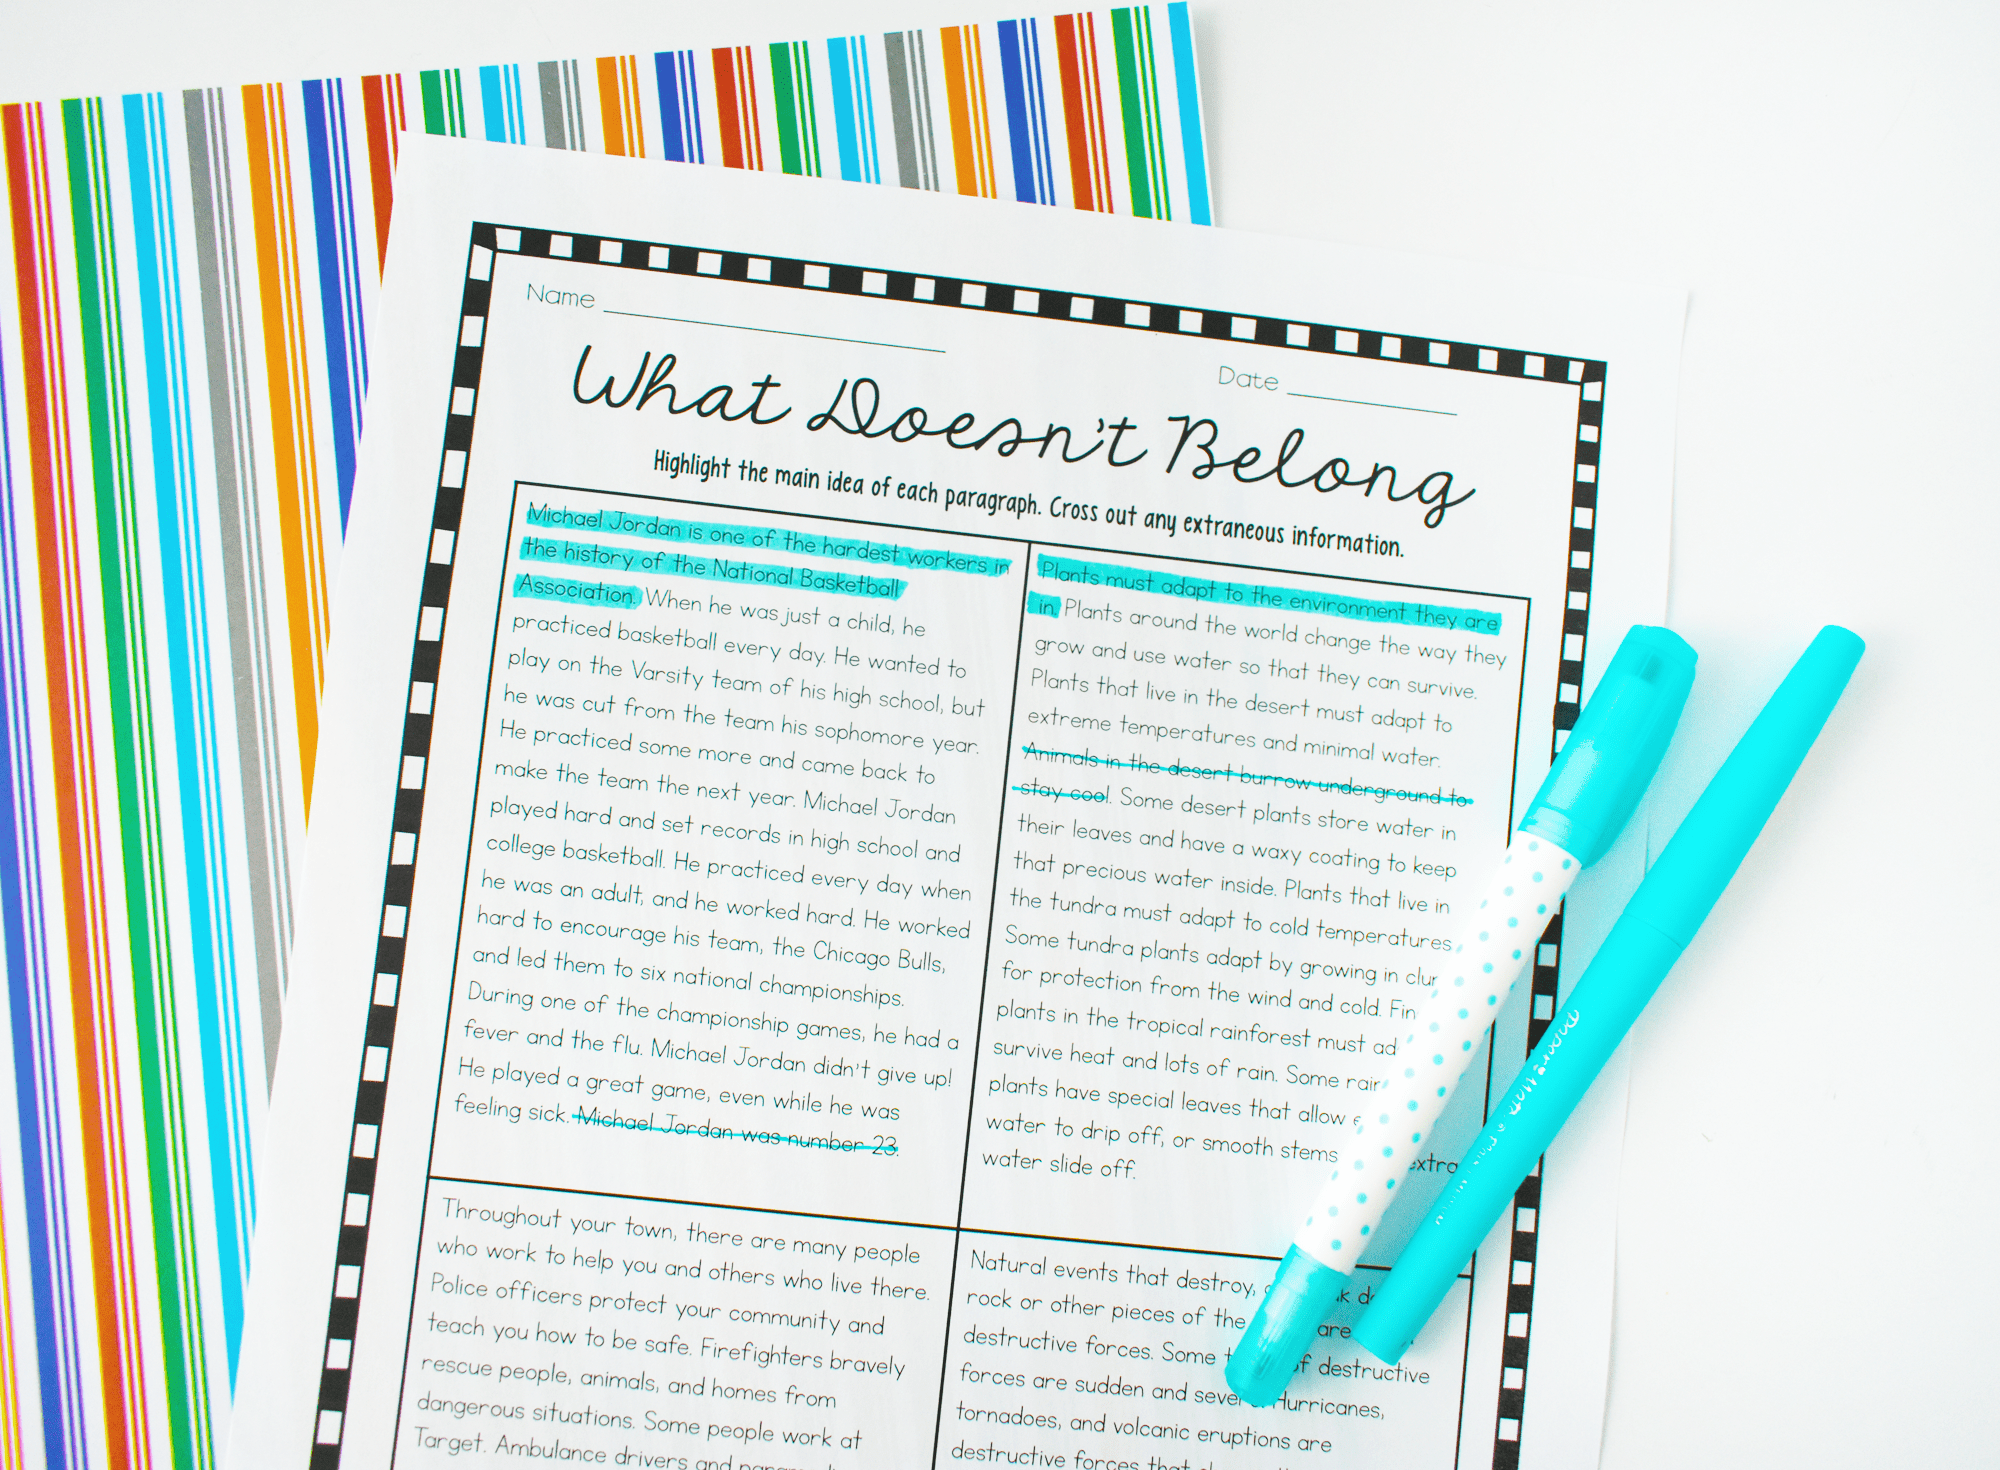 Name
Date
What Doesn't Belong
Highlight the main idea of each paragraph. Cross out any extraneous information.
Michael Jordan is one of the hardest workers in
the history of the National Basketball
Association. When he was just a child, he
practiced basketball every day. He wanted to
play on the Varsity team of his high school, but
he was cut from the team his sophomore year.
He practiced some more and came back to
make the team the next year. Michael Jordan
played hard and set records in high school and
college basketball. He practiced every day when
he was an adult, and he worked hard. He worked
hard to encourage his team, the Chicago Bulls,
and led them to six national championships.
During one of the championship games, he had a
fever and the flu. Michael Jordan didn't give up!
He played a great game, even while he was
feeling sick. Michael Jordan was number 23.
Plants must adapt to the environment they are
in. Plants around the world change the way they
grow and use water so that they can survive.
Plants that live in the desert must adapt to
extreme temperatures and minimal water.
Animals in the desert burrow underground to
stay cool. Some desert plants store water in
their leaves and have a waxy coating to keep
that precious water inside. Plants that live in
the tundra must adapt to cold temperatures
Some tundra plants adapt by growing in
for protection from the wind and cold.
plants in the tropical rainforest must
survive heat and lots of rain. Some
plants have special leaves that allow
water to drip off, or smooth stems
water slide off.
Throughout your town, there are many people
who work to help you and others who live there.
Police officers protect your community and
teach you how to be safe. Firefighters bravely
rescue people, animals, and homes from
dangerous situations. Some people work at
Target. Ambulance drivers and
Natural events that destroy,
rock or other pieces of the are
destructive forces. Some of destructive
forces are sudden and Hurricanes,
tornadoes, and volcanic eruptions are
destructive forces that